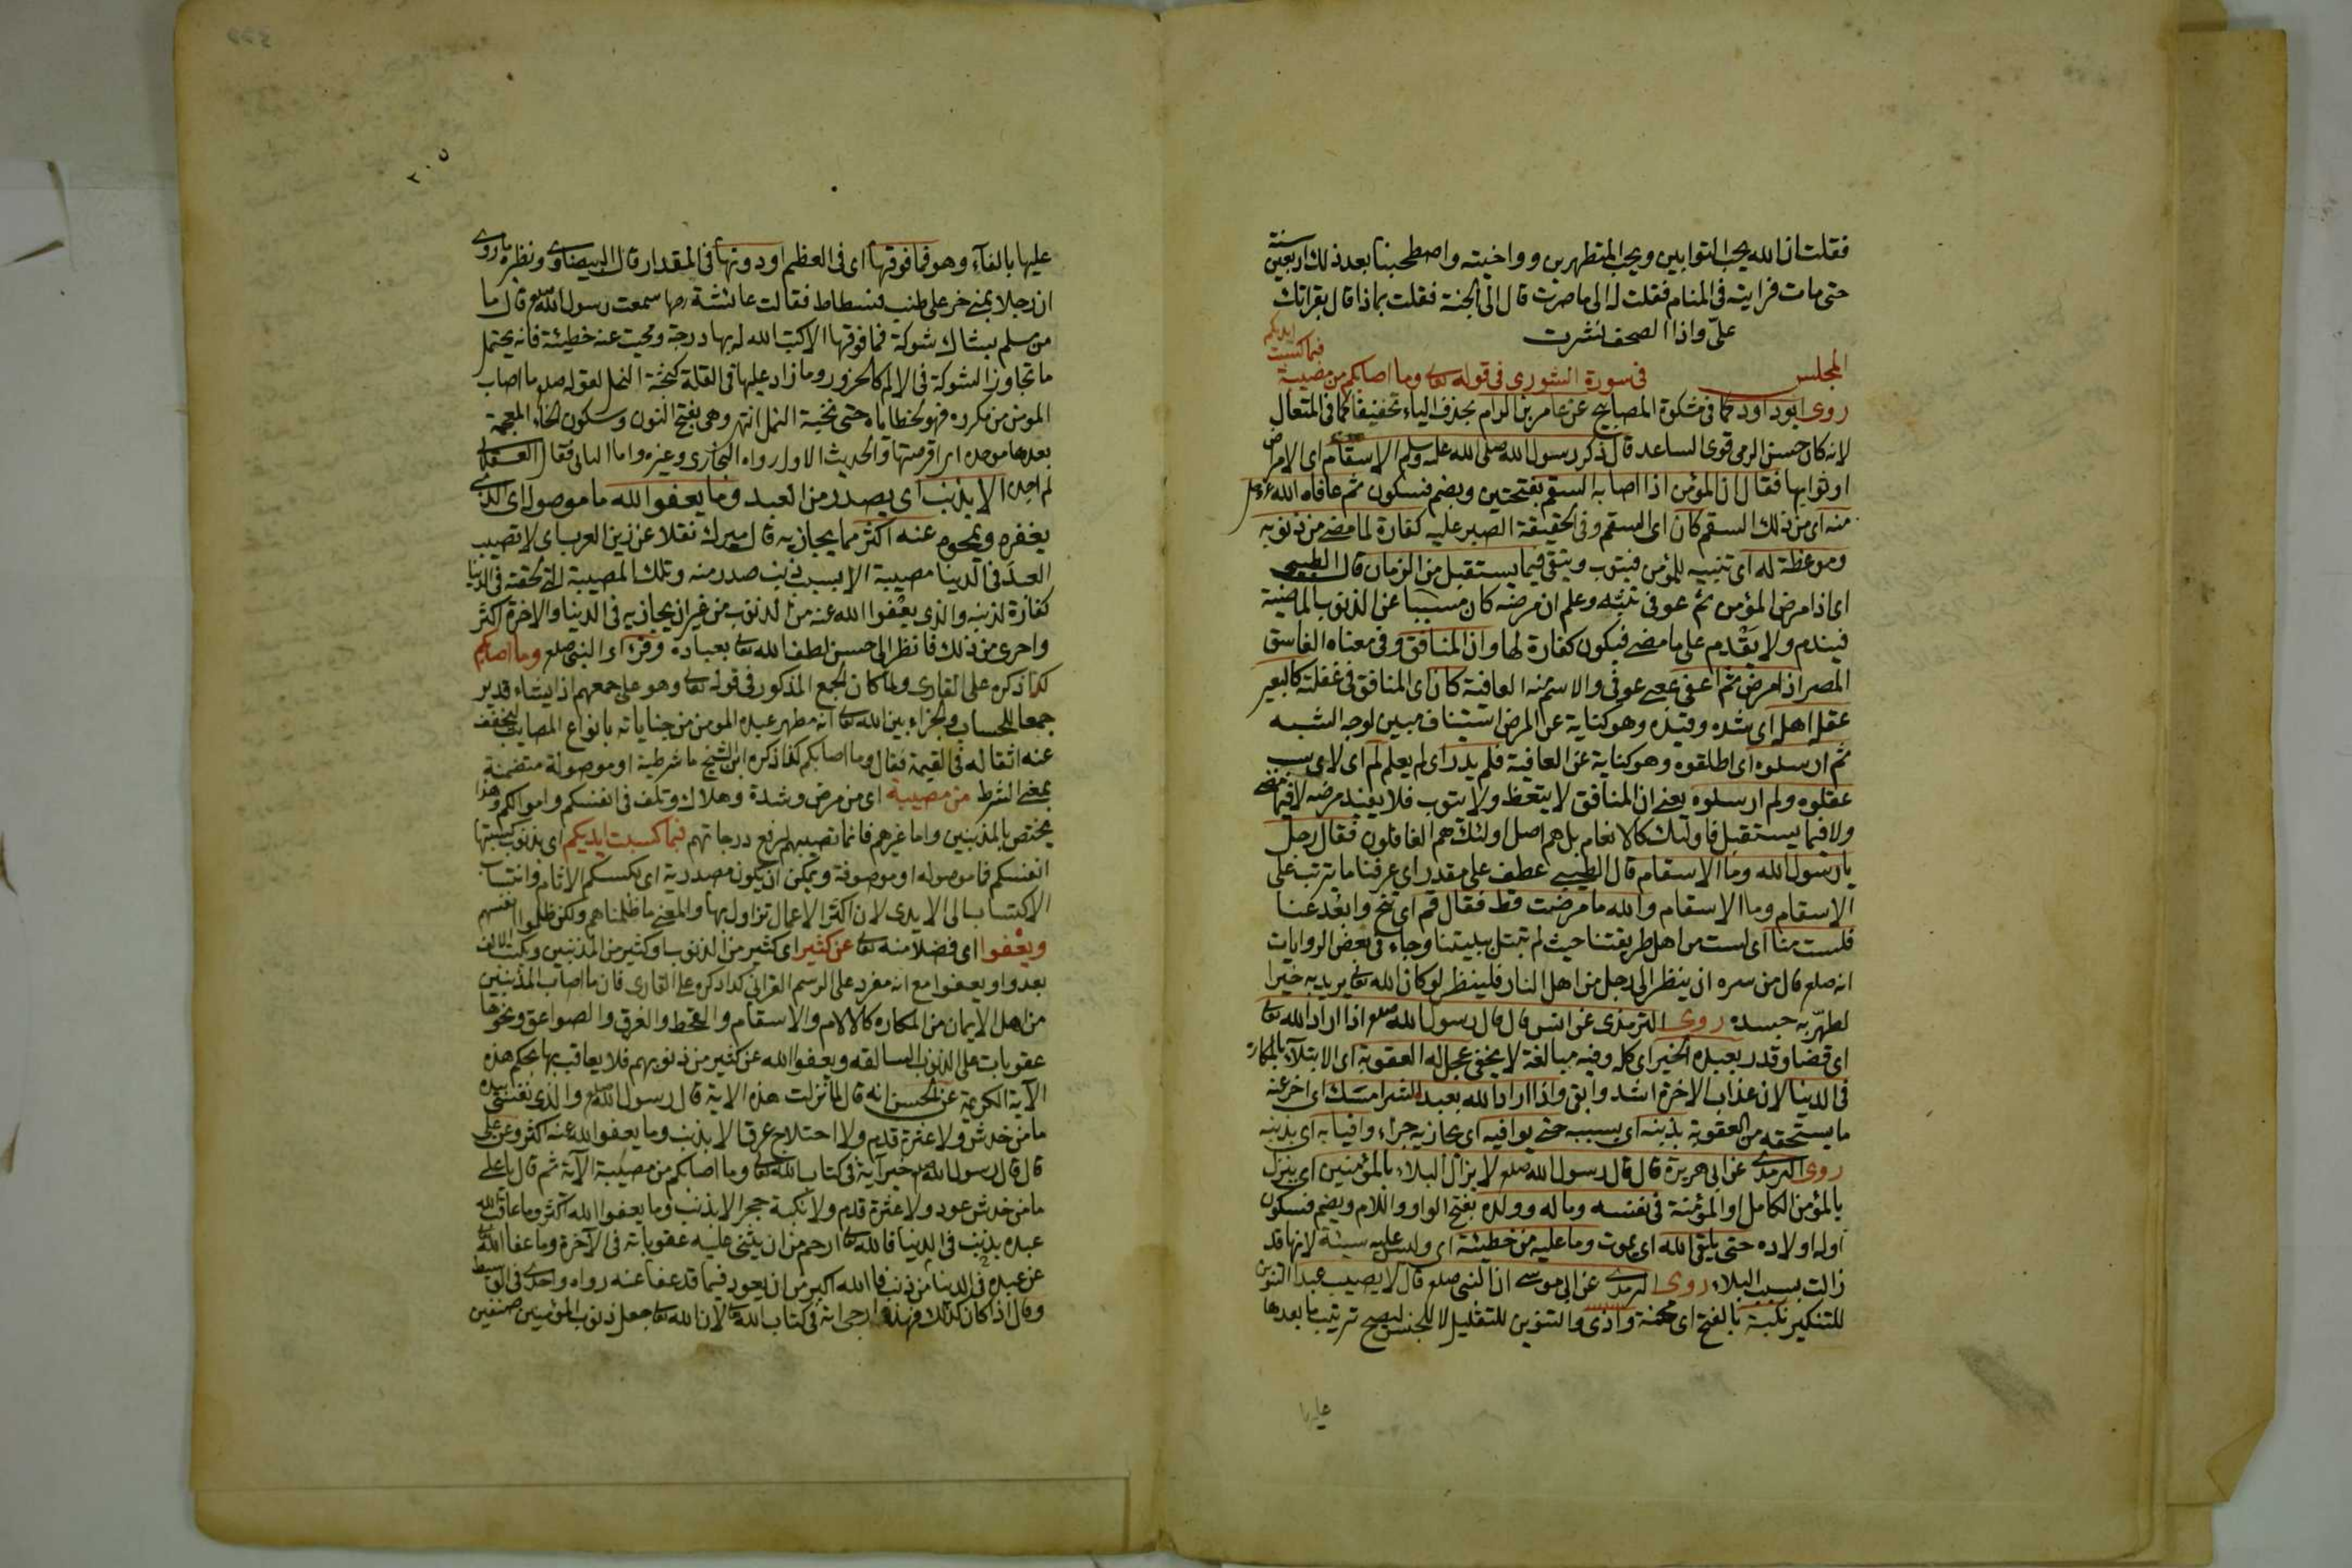 فقلت ان الله يحب التوابين ويحب المتطهرين وواخيته واصطحبنا بعد ذلك اربعين سنة
حتى مات فرايته فى المنام فقلت له الى ما صرت قال الى الجنة فقلت بماذا قال بقراتك
علىّ واذا الصحف نشرت
المجلس فى سورة الشورى فى قوله تعالى وما اصابكم من مصيبة فبما كسبت ايديكم
روى ابو داود كما فى مشكوة المصابيح عن عامر بن الرام بحذف الياء تخفيفا كما فى المتعال
لانه كان حسن الرمى قوى الساعد قال ذكر رسول الله صلى الله عليه وسلم الاسقام اى الامراض
او ثوابها فقال ان المؤمن اذا اصابه السقم بفتحتين وبضم فسكون ثم عافاه الله عزوجل
منه اى من ذلك السقم كان اى السقم وفى الحقيقة الصبر عليه كفارة لما مضى من ذنوبه
وموعظة له اى تنبيه للمؤمن فيتوب ويتقى فيما يستقبل من الزمان قال الطيبى
اى اذا مرض المؤمن ثم عوفى تنبّه وعلم ان مرضه كان مسببا عن الذنوب الماضية
فيندم ولا يقدم على ما مضى فيكون كفارة لها وان المنافق وفى معناه الفاسق
المصر اذا مرض ثم اعفى بمعنى عوفى والاسم منه العافية كان اى المنافق فى غفلته كالبعير
عقله اهله اى شده وقيده وهو كناية عن المرض استيناف مبين لوجه الشبه
ثم ارسلوه اى اطلقوه وهو كناية عن العافية فلم يدر اى لم يعلم لم اى لاى سبب
عقلوه ولم ارسلوه يعنى ان المنافق لا يتعظ ولا يتوب فلا يفيد مرضه لا فيما مضى
ولا فيما يستقبل فاولئك كالانعام بل هم اضل اولئك هم الغافلون فقال رجل
يا رسول الله وما الاسقام قال الطيبى عطف على مقدر اى عرفنا ما يترتب على
الاسقام وما الاسقام والله ما مرضت قط فقال قم اى تنح وابعد عنا
فلست منا اى لست من اهل طريقتنا حيث لم تبتل ببليتنا وجاء فى بعض الروايات
انه صلعم قال من سره ان ينظر الى رجل من اهل النار فلينظر لو كان الله تعالى يريد به خيرا
لطهّر به جسده روى الترمذى عن انس قال قال رسول الله صلعم اذا اراد الله تعالى
اى قضا وقدر بعبده الخير اى كله وفيه مبالغة لا يخفى عجل له العقوبة اى الابتلاء بالمكاره
فى الدنيا لان عذاب الاخرة اشد وابقى واذا اراد الله بعبده الشر امسك اى اخر عنه
ما يستحقه من العقوبة بذنبه اى بسببه حتى يوافيه اى يجازيه جزاء وافيا به اى بذنبه
روى الترمذى عن ابى هريرة قال قال رسول الله صلعم لا يزال البلاء بالمؤمنين اى ينزل
بالمؤمن الكامل او المؤمنة فى نفسه وماله وولده بفتح الواو واللام وبضم فسكون
اوله اولاده حتى يلقى الله اى يموت وما عليه من خطيئة اى وليس عليه سيئة لانها قد
زالت بسبب البلاء روى الترمذى عن ابى موسى ان النبى صلعم قال لا يصيب عبدا التنوين
للتنكير نكبة بالفتح اى محنة واذى والتنوين للتقليل لا للجنس ليصح ترتيب ما بعدها
عليها
٢٠٥
عليها بالفآء وهو فما فوقها اى فى العظم او دونها فى المقدار قال البيضاوى ونظيره ما روى
ان رجلا بمنى خر على طنب فسطاط فقالت عائشة رضها سمعت رسول الله صلعم قال ما
من مسلم يشاك شوكة فما فوقها الا كتب الله له بها درجة ومحيت عنه خطيئة فانه يحتمل
ما تجاوز الشوكة فى الالم كالخرور وما زاد عليها فى القلة كنخبة النمل لقوله صلعم ما اصاب
المومن من مكروه فهو لخطاياه حتى نخبة النمل انتهى وهى بفتح النون وسكون الخاء المعجمة
بعدها موحدة اى قرصتها والحديث الاول رواه البخارى وغيره واما الثانى فقال العسقلانى
لم اجده الا بذنب اى يصدر من العبد وما يعفوا الله ما موصول اى الذى
يغفره ويمحوه عنه اكثر مما يجازيه قال ميرك نقلا عن زين العرب اى لا تصيب
العبد فى الدنيا مصيبة الا بسبب ذنب صدر منه وتلك المصيبة التى لحقته فى الدنيا
كفارة لذنبه والذى يعفوا الله عنه من الذنوب من غير ان يجازيه فى الدنيا والاخرة اكثر
واحرى من ذلك فانظر الى حسن لطف الله تعالى بعباده وقرء اى النبى صلعم وما اصابكم
كذا ذكره على القارى ولما كان الجمع المذكور فى قوله تعالى وهو على جمعهم اذا يشاء قدير
جمعا للحساب والجزاء بين الله تعالى انه مطهر عبده المومن من جناياته بانواع المصايب ليخفف
عنه اثقاله فى القيمة فقال وما اصابكم كذا ذكره ابن الشيخ ما شرطية او موصولة متضمنة
بمعنى الشرط من مصيبة اى من مرض وشدة وهلاك وتلف فى انفسكم واموالكم وهذا
يختص بالمذنبين واما غيرهم فانما تصيبهم لرفع درجاتهم فبما كسبت ايديكم اى بذنوب كسبتها
انفسكم فما موصوله او موصوفة ويمكن ان يكون مصدرية اى بكسبكم الاثام وانتساب
الاكتساب الى الايدى لان اكثر الاعمال تزاول بها والمعنى ما ظلمناهم ولكن ظلموا انفسهم
ويعفوا اى فضلا منه تعالى عن كثير اى كثير من الذنوب او كثير من المذنبين ويكتب الالف
بعد واو يعفوا مع انه مفرد على الرسم القرانى كذا ذكره على القارى فان ما اصاب المذنبين
من اهل الايمان من المكاره كالالام والاسقام والقحط والغرق والصواعق ونحوها
عقوبات على الذنوب السالفة ويعفوا الله عن كثير من ذنوبهم فلا يعاقب بها بحكم هذه
الآية الكريمة عن الحسن انه قال لما نزلت هذه الاية قال رسول الله صلعم والذى نفسى بيده
ما من خدش ولا عثرة قدم ولا اختلاج عرق الا بذنب وما يعفوا الله عنه اكثر وعن على
قال قال رسول الله صلعم خير آية فى كتاب الله تعالى وما اصابكم من مصيبة الآية ثم قال يا على
ما من خدش عود ولا عثرة قدم ولا نكبة حجر الا بذنب وما يعفوا الله اكثر وما عاقب الله
عبده بذنب فى الدنيا فالله تعالى ارحم من ان يثنى عليه عقوباته فى الآخرة وما عفا الله
عن عبده فى الدنيا من ذنب فالله اكبر من ان يعود فيما قد عفا عنه رواه واحدى فى الوسيط
وقال اذا كان كذلك فهذه ارجى اية فى كتاب الله تعالى لان الله تعالى جعل ذنوب المؤمنين صنفين